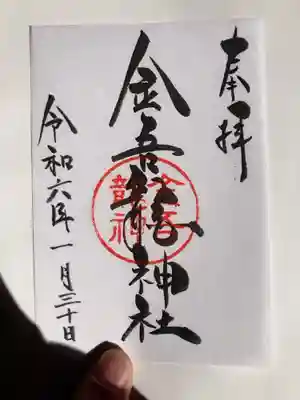 奉拝
金吾龍神社
令和六年一月三十日